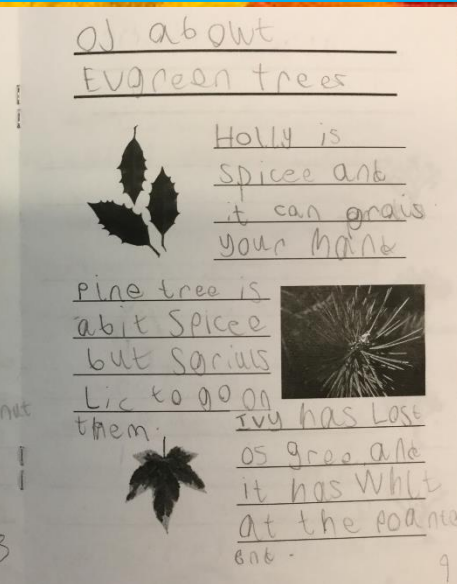 OJ about
Evgreen trees
Holly is
Spicee and
it can grais
your hand
pine tree is
abit Spicee
but Sqriuls
Lic to go on
them.
Ivy has Lost
os gree and
it has Whit
at the poante
end.
nut
3
9